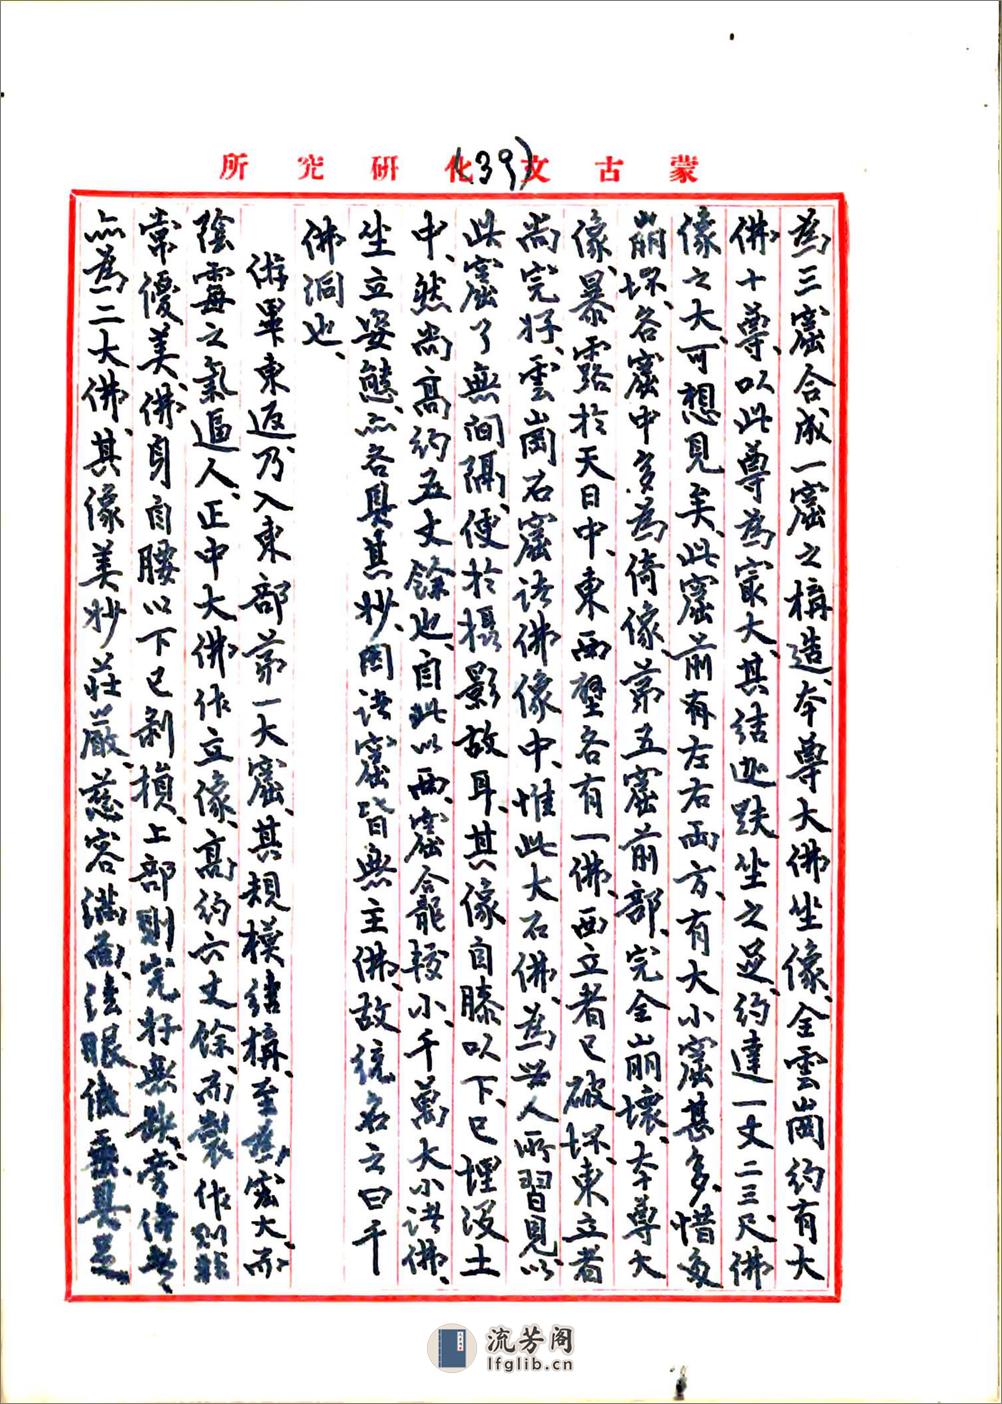 蒙古文化研究所
(39)
為三窟合成一窟之構造、本尊大佛坐像、全雲崗約有大
佛十尊、以此尊為最大、其結迦趺坐之足、約達一丈二三尺、佛
像之大、可想見矣、此窟前有左右兩方、有大小窟甚多、惜多
崩壞、各窟中多為倚像、第五窟前部、完全崩壞、本尊大
像、暴露於天日中、東西壁各有一佛、西立者已破坏、東立者
尚完好、雲崗石窟諸佛像中、惟此大石佛、為世人所習見、以
此窟了無間隔、便於攝影故耳、其像自膝以下、已埋没土
中、然尚高約五丈餘也、自此以西、窟合龍較小、千萬大小諸佛、
坐立姿態、亦各具其妙、因諸窟皆無主佛、故總名之曰千
佛洞也、
游畢東返、乃入東部第一大窟、其規模結構、至為宏大、而
陰霉之氣逼人、正中大佛作立像、高約六丈餘、而製作則非
常優美、佛身自腰以下已剥損、上部則完好無缺、旁侍者
亦為二大佛、其像美妙莊嚴、慈容滿面、法眼低垂、具